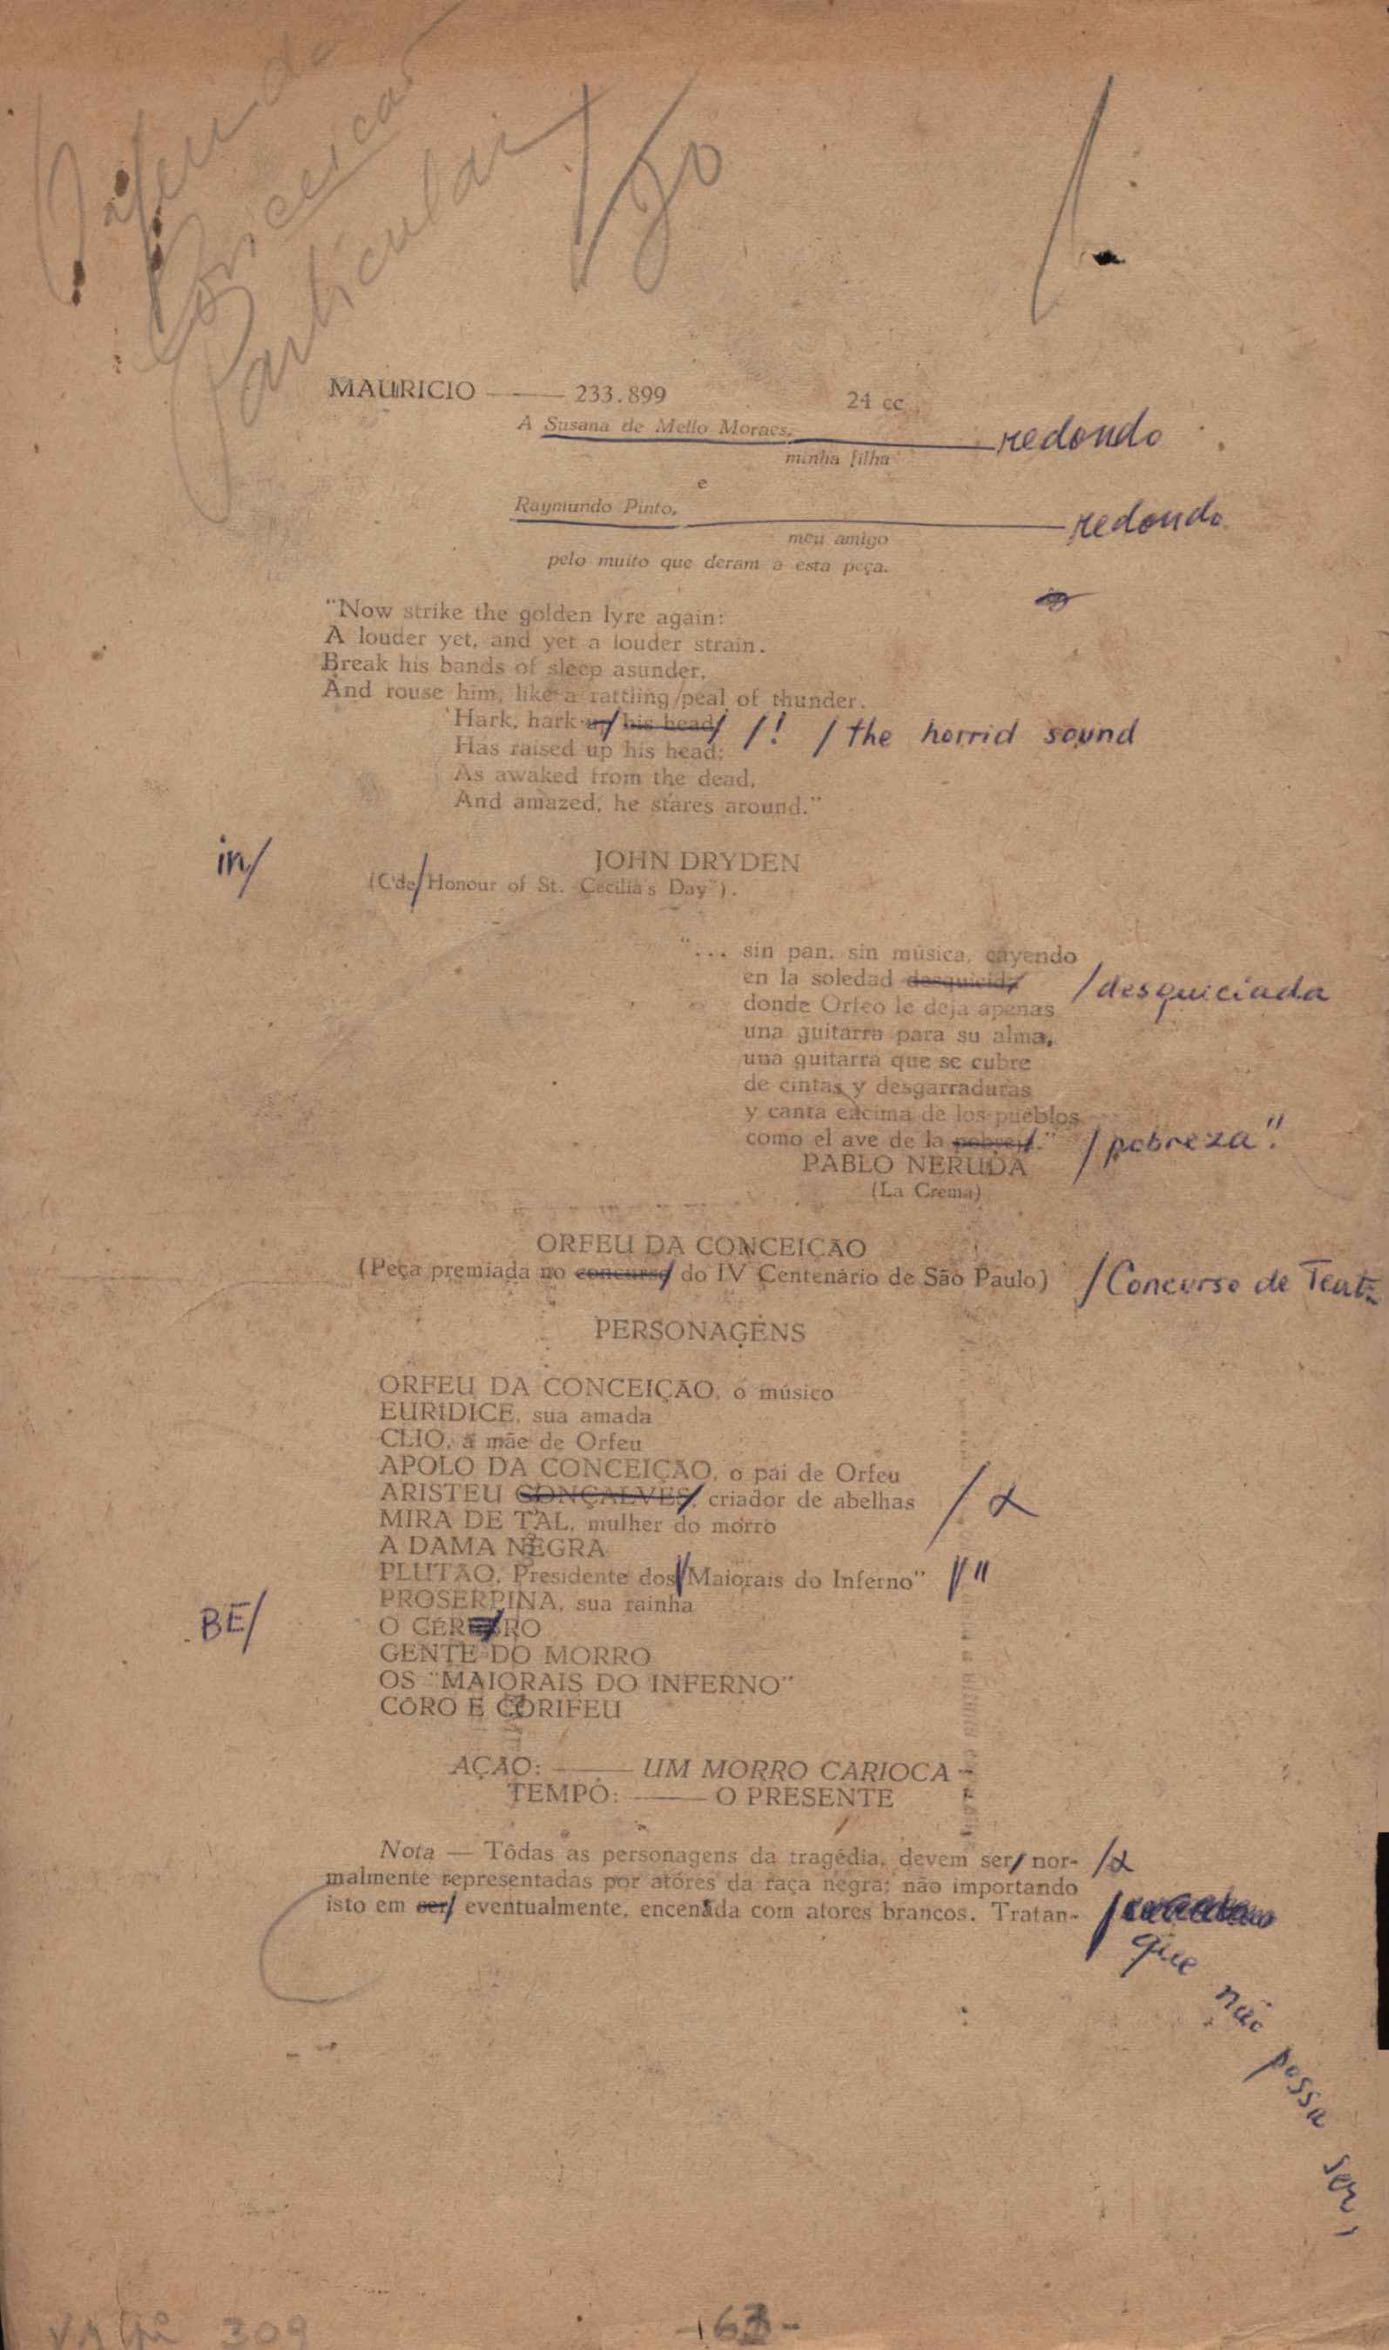 Orfeu da
Conceicao
Particular
MAURICIO —— 233.899 24 cc
A Susana de Mello Moraes, redondo
minha filha
e
Raymundo Pinto, redondo
meu amigo
pelo muito que deram a esta peça.
"Now strike the golden lyre again:
A louder yet, and yet a louder strain.
Break his bands of sleep asunder,
And rouse him, like a rattling/peal of thunder.
'Hark, hark his head /! / the horrid sound
Has raised up his head;
As awaked from the dead,
And amazed, he stares around."
in/ JOHN DRYDEN
(Ode/Honour of St. Cecilia's Day").
"... sin pan, sin música, cayendo
en la soledad desquicida /desquiciada
donde Orfeo le deja apenas
una guitarra para su alma,
una guitarra que se cubre
de cintas y desgarraduras
y canta encima de los pueblos
como el ave de la /pobreza".
PABLO NERUDA
(La Crema)
ORFEU DA CONCEICÃO
(Peça premiada no concurso do IV Centenário de São Paulo) /Concurso de
PERSONAGENS
ORFEU DA CONCEIÇÃO, o músico
EURÍDICE, sua amada
CLIO, a mãe de Orfeu
APOLO DA CONCEIÇÃO, o pai de Orfeu
ARISTEU GONÇALVES, criador de abelhas
MIRA DE TAL, mulher do morro
A DAMA NEGRA
PLUTÃO, Presidente dos/Maiorais do Inferno" /"
PROSERPINA, sua rainha
BE/ O CÉR RO
GENTE DO MORRO
OS "MAIORAIS DO INFERNO"
CÔRO E CORIFEU
AÇÃO: —— UM MORRO CARIOCA
TEMPO: —— O PRESENTE
Nota — Tôdas as personagens da tragédia, devem ser/ nor-
malmente representadas por atôres da raça negra; não importando
isto em ser/ eventualmente, encenada com atores brancos. Tratan-
que não possa ser,
309
63-